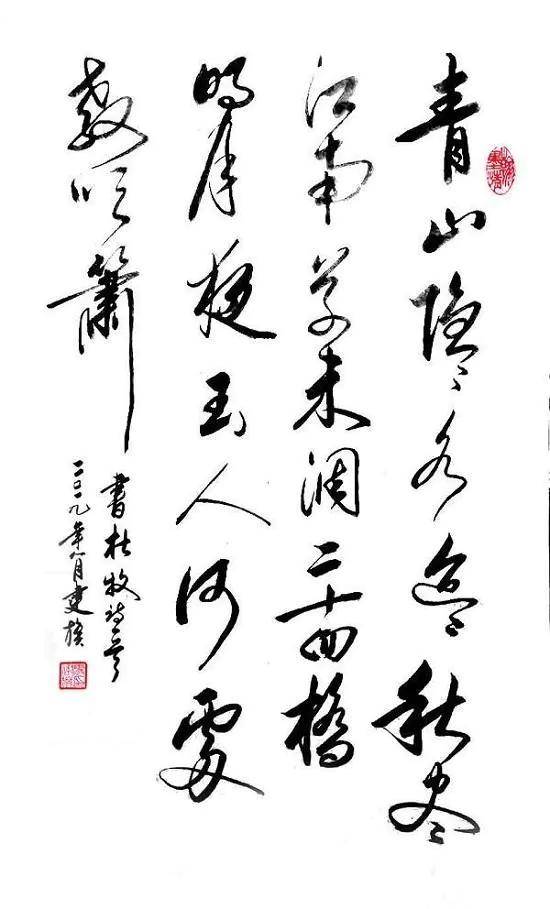 青山隐〻水迢〻秋尽
江南草未凋二十四橋
明月夜玉人何處
教吹簫
書杜牧诗一首
二〇一九年八月建